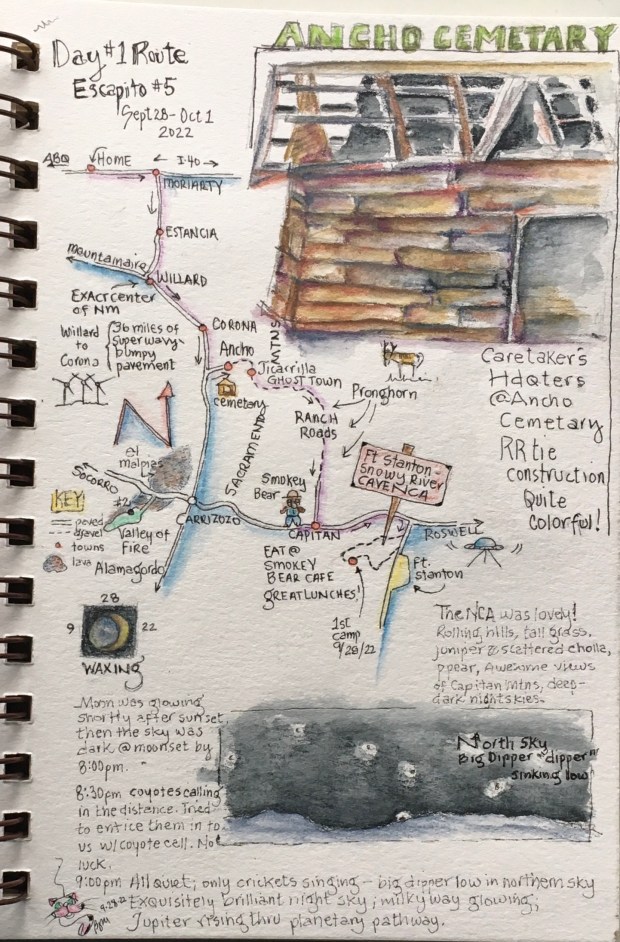 Day #1 Route
Escapito #5
Sept 28 - Oct 1
2022
ANCHO CEMETARY
ABQ
HOME
← I-40 →
MORIARTY
ESTANCIA
mountainaire
WILLARD
EXACT center
of NM
Willard
to
Corona
36 miles of
super wavy-
bumpy
pavement
CORONA
Ancho
cemetary
Jicarrilla
GHOST TOWN
SACRAMENTO
MTNS
RANCH
ROADS
Pronghorn
N
el
malpias
SOCORRO
KEY
paved
gravel
towns
lava
#2
Valley of
FIRE
Alamagordo
CARRIZOZO
Smokey
Bear
CAPITAN
EAT @
SMOKEY
BEAR CAFE
GREAT LUNCHES!
Ft Stanton -
Snowy River
CAVE NCA
ROSWELL
ft.
stanton
1st
camp
9/28/22
Caretaker's
Hdqters
@Ancho
Cemetary
RR tie
construction
Quite
colorful!
28
9
22
WAXING
The NCA was lovely!
Rolling hills, tall grass,
juniper & scattered cholla,
ppear, Awesome views
of Capitan Mtns, deep-
dark night skies.
Moon was glowing
shortly after sunset,
then the sky was
dark @ moonset by
8:00pm.
8:30pm coyotes calling
in the distance. Tried
to entice them in to
us w/ coyote cell. No
luck.
North Sky
Big Dipper "dipper"
sinking low
9:00pm All quiet; only crickets singing - big dipper low in northern sky
Exquisitely brilliant night sky; milky way glowing;
Jupiter rising thru planetary pathway.
9-28-22